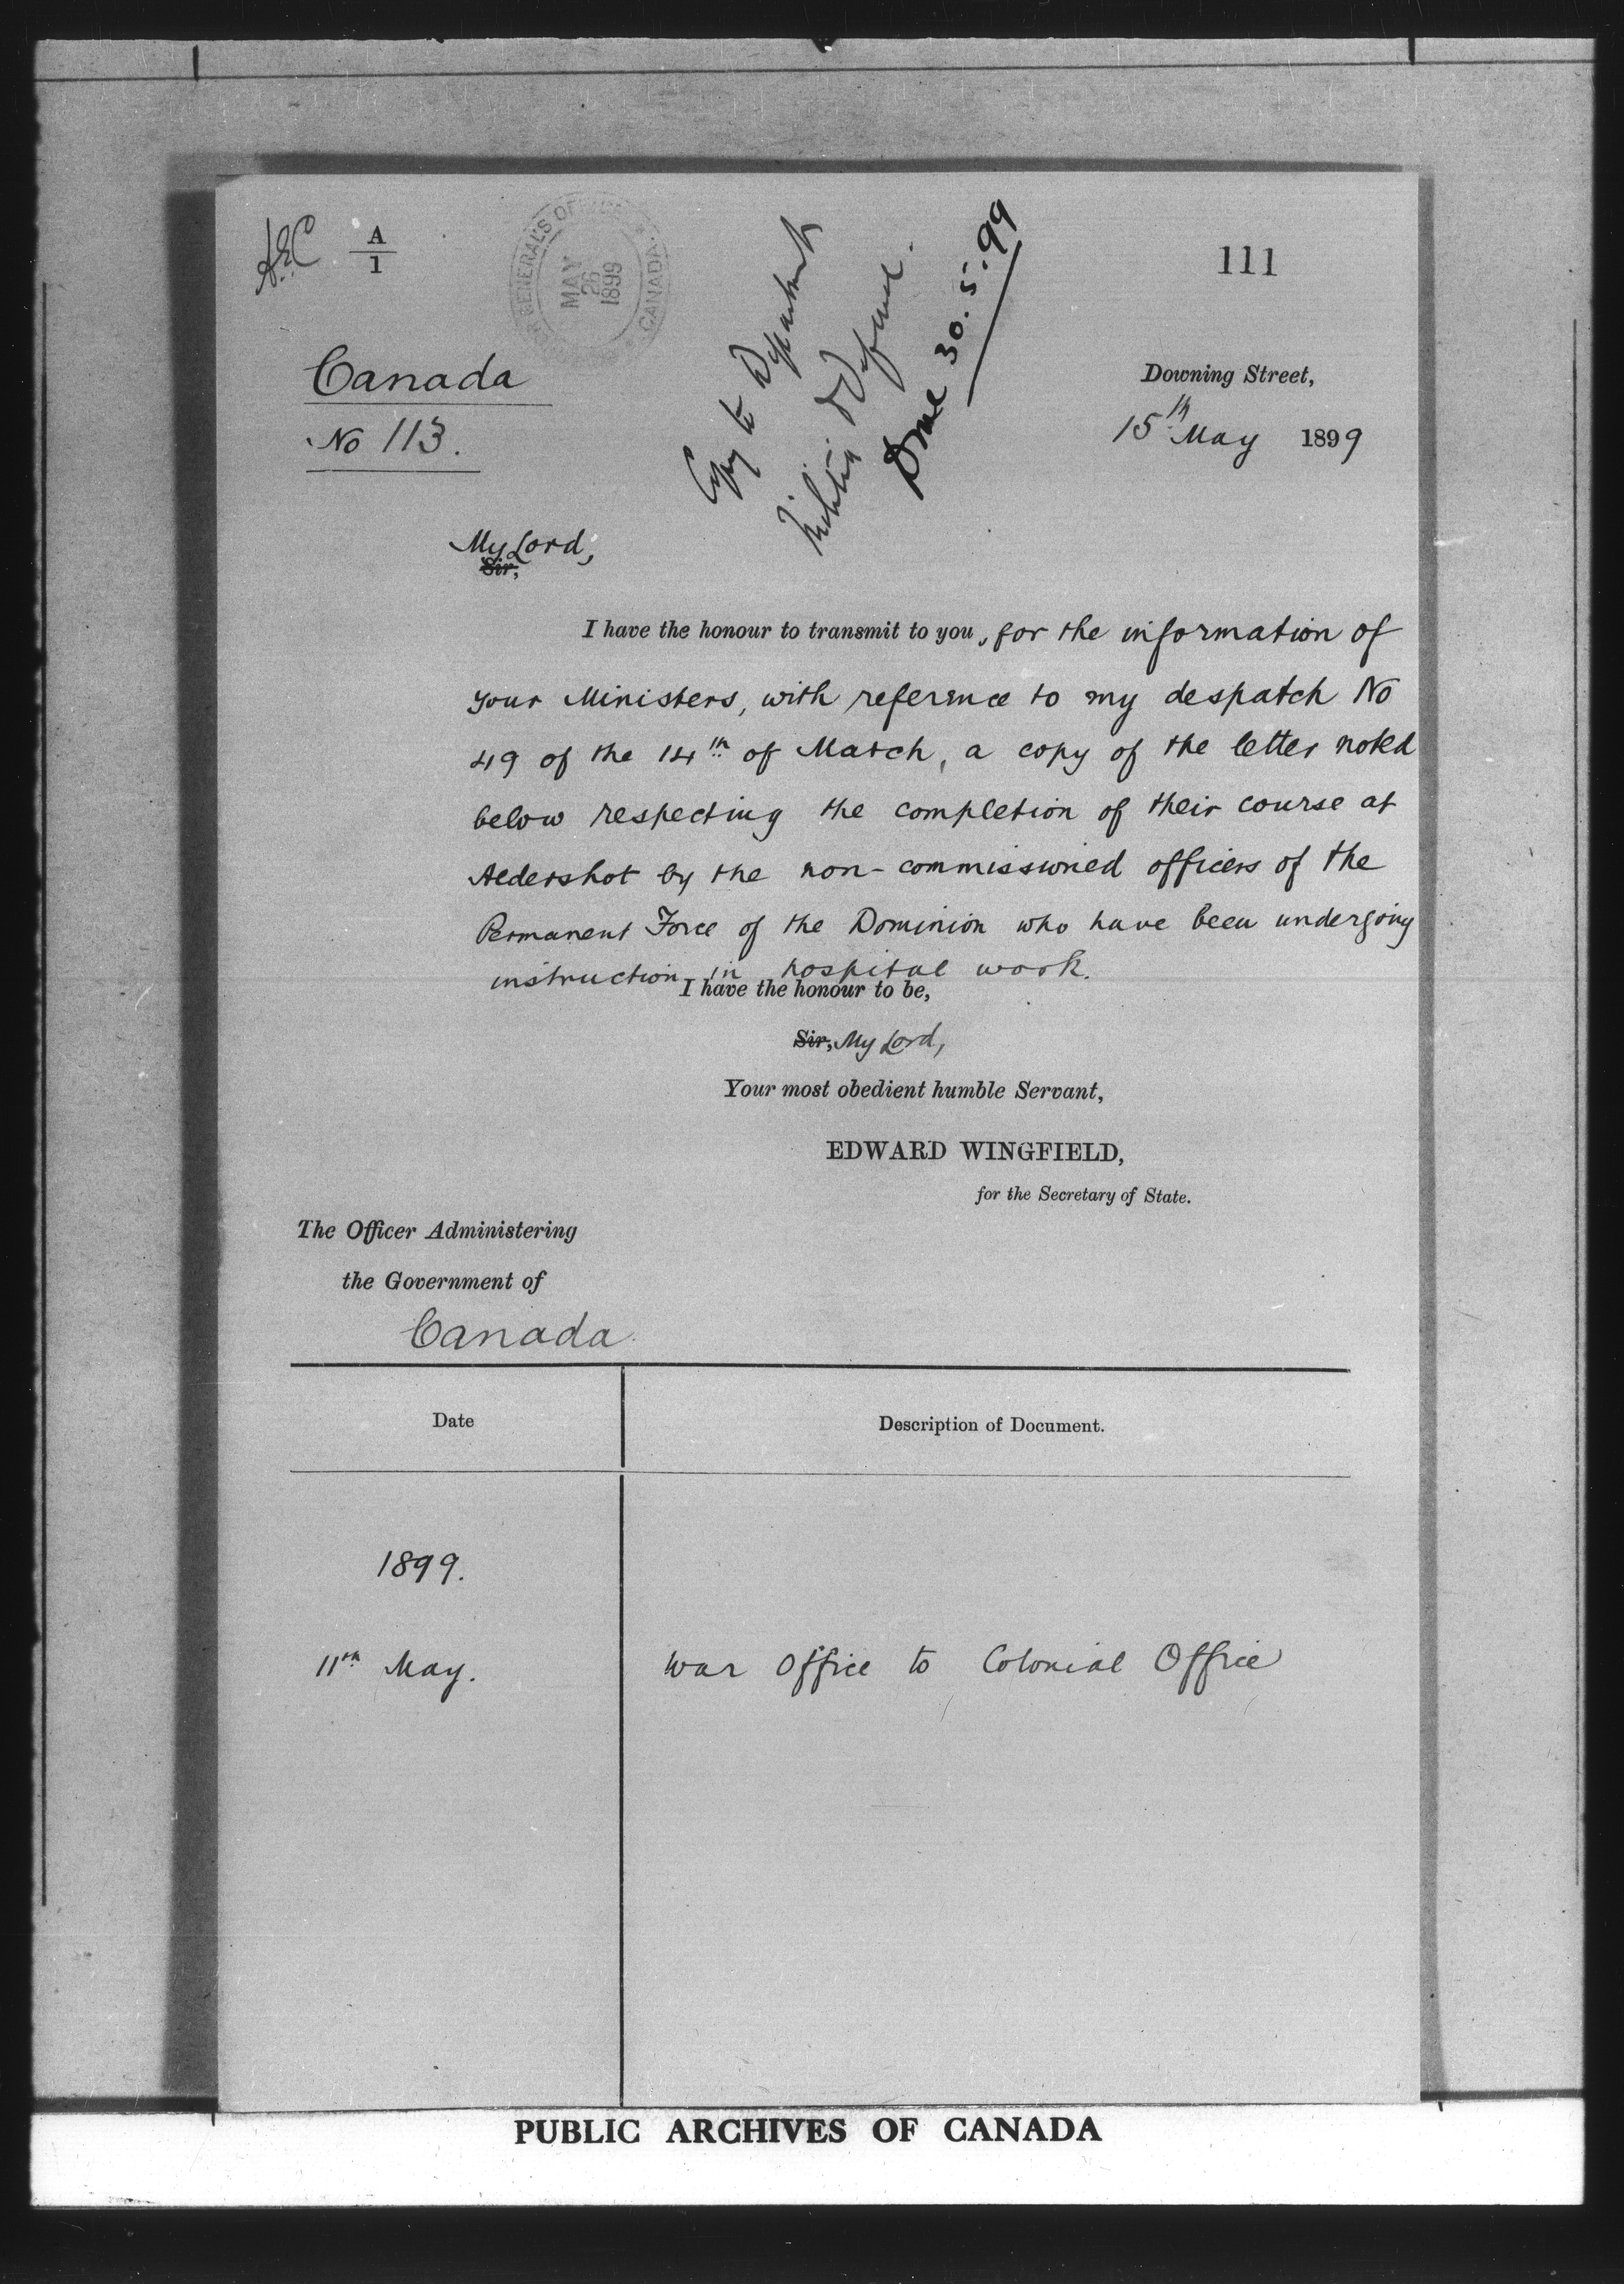 A
1
GENERAL'S OFFICE
MAY
26
1899
CANADA
Copy to Department
Militia & Defence.
Done 30.5.99
111
Canada
No 113.
Downing Street,
15th May 1899
My Lord,
Sir,
I have the honour to transmit to you, for the information of
your Ministers, with reference to my despatch No
49 of the 14th of March, a copy of the letter noted
below respecting the completion of their course at
Aldershot by the non-commissioned officers of the
Permanent Force of the Dominion who have been undergoing
instruction in hospital work.
I have the honour to be,
Sir, My Lord,
Your most obedient humble Servant,
EDWARD WINGFIELD,
for the Secretary of State.
The Officer Administering
the Government of
Canada
Date
Description of Document.
1899.
11th May.
War Office to Colonial Office
PUBLIC ARCHIVES OF CANADA